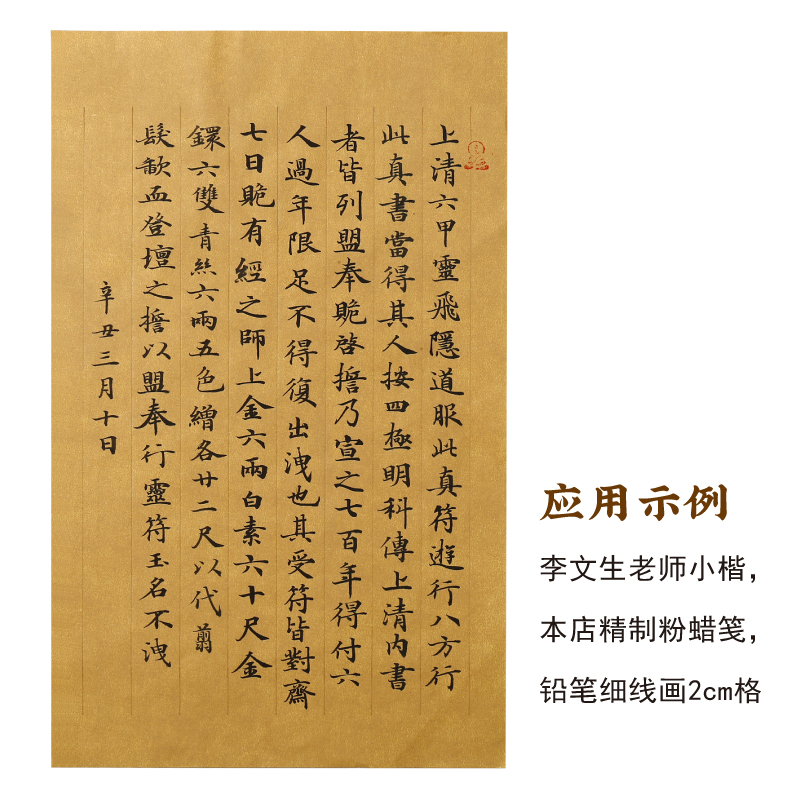 上清六甲靈飛隱道服此真符遊行八方行
此真書當得其人按四極明科傳上清內書
者皆列盟奉贶啓擔乃宣之七百年得付六
人過年限足不得復出洩也其受符皆對齋
七日贶有經之師上金六兩白素六十尺金
鐶六雙青絲六兩五色繒各廿二尺以代翦
髮歃血登壇之擔以盟奉行靈符玉名不洩
辛丑三月十日
应用示例
李文生老师小楷，
本店精制粉蜡笺，
铅笔细线画2cm格